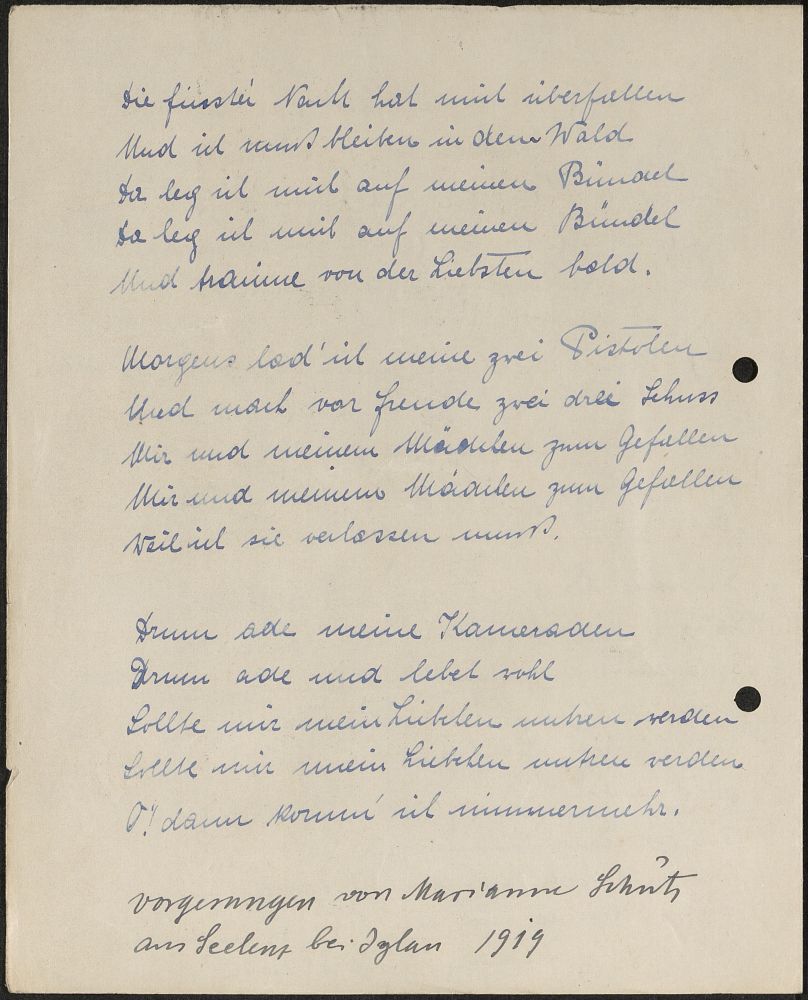 Die finstre Nacht hat mich überfallen
Und ich muß bleiben in dem Wald
Da leg ich mich auf meinen Bündel
Da leg ich mich auf meinen Bündel
Und träume von der Liebsten bald.
Morgens lad' ich meine zwei Pistolen
Und mach vor freude zwei drei Schuss
Mir und meinem Mädchen zum Gefallen
Mir und meinem Mädchen zum Gefallen
Weil ich sie verlassen muß.
Drum ade meine Kameraden
Drum ade und lebet wohl
Sollte mir mein Liebchen untreu werden
Sollte mir mein Liebchen untreu werden
O! dann komm' ich nimmermehr.
vorgesungen von Marianne Schütz
aus Seelenz bei Iglau 1919